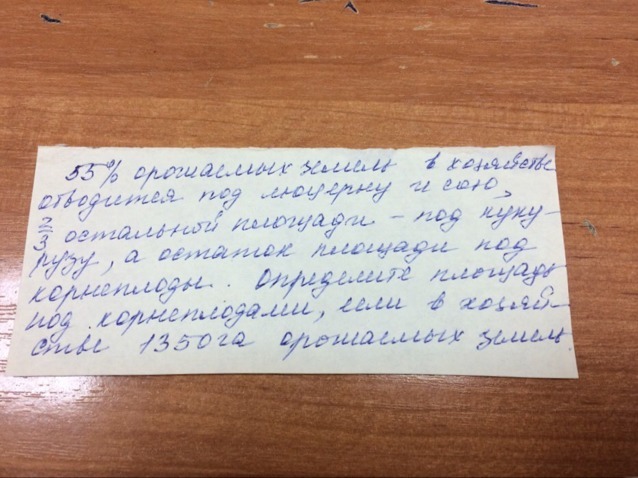 55% орошаемых земель в хозяйстве
отводится под люцерну и сою,
2/3 остальной площади - под куку-
рузу, а остаток площади под
корнеплоды. Определите площадь
под корнеплодами, если в хозяй-
стве 1350га орошаемых земель.